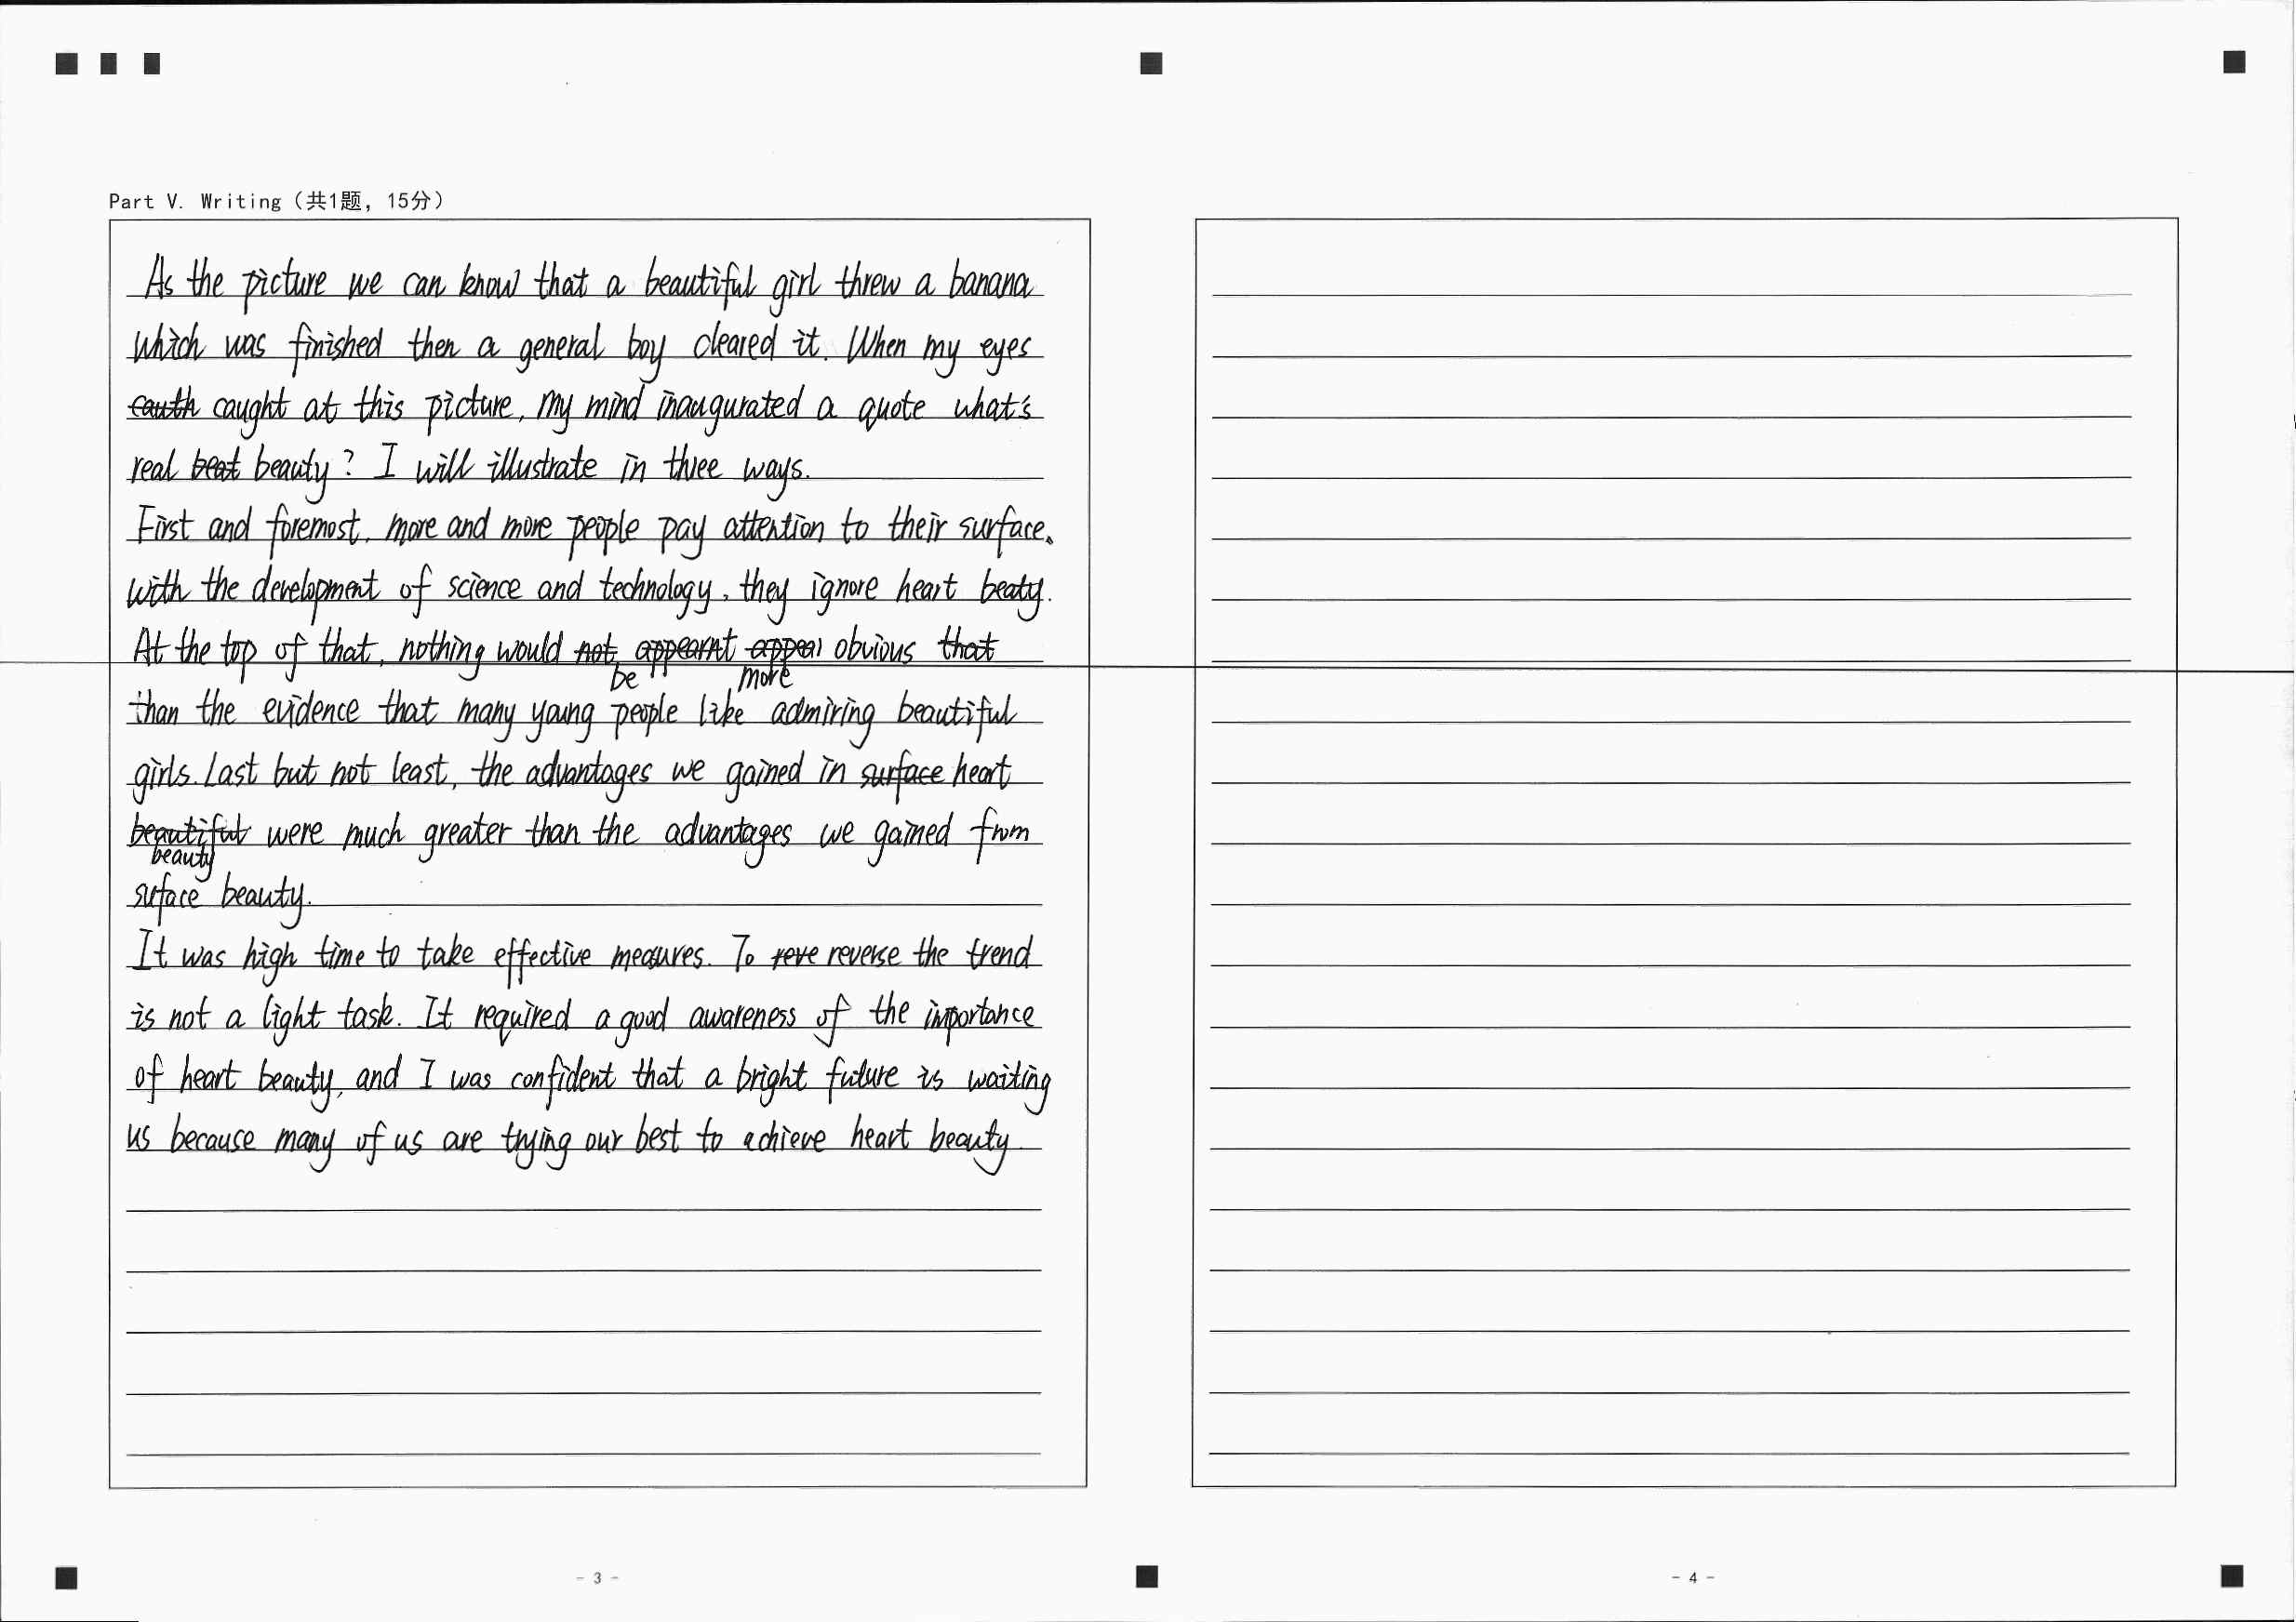 Part V. Writing（共1题，15分）
As the picture we can know that a beautiful girl threw a banana
which was finished then a general boy cleared it. When my eyes
cauth caught at this picture, my mind inaugurated a quote what's
real beat beauty? I will illustrate in three ways.
First and foremost, more and more people pay attention to their surface.
with the development of science and technology, they ignore heart beaty.
At the top of that, nothing would not appearnt appear obvious that
be more
than the evidence that many young people like admiring beautiful
girls. Last but not least, the advantages we gained in surface heart
beautiful were much greater than the advantages we gained from
beauty
surface beauty.
It was high time to take effective measures. To reve reverse the trend
is not a light task. It required a good awareness of the importance
of heart beauty, and I was confident that a bright future is waiting
us because many of us are trying our best to achieve heart beauty.
- 3 -
- 4 -